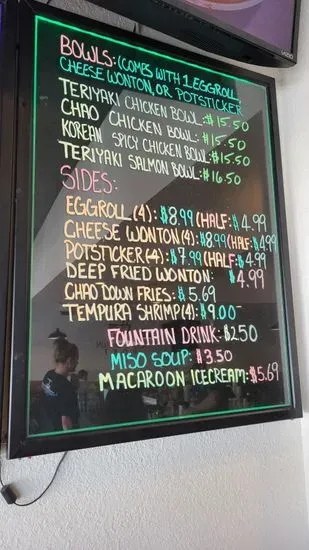 BOWLS: (COMES WITH 1 EGGROLL
CHEESE WONTON, OR POTSTICKER
TERIYAKI CHICKEN BOWL: $15.50
CHAO CHICKEN BOWL: $15.50
KOREAN SPICY CHICKEN BOWL: $15.50
TERIYAKI SALMON BOWL: $16.50
SIDES:
EGGROLL (4): $8.99 (HALF: $4.99
CHEESE WONTON (4): $8.99 (HALF: $4.99
POTSTICKER (4): $7.99 (HALF: $4.99
DEEP FRIED WONTON: $4.99
CHAO DOWN FRIES: $5.69
TEMPURA SHRIMP (4): $9.00
FOUNTAIN DRINK: $2.50
MISO SOUP: $3.50
MACAROON ICECREAM: $5.69
VIZIO